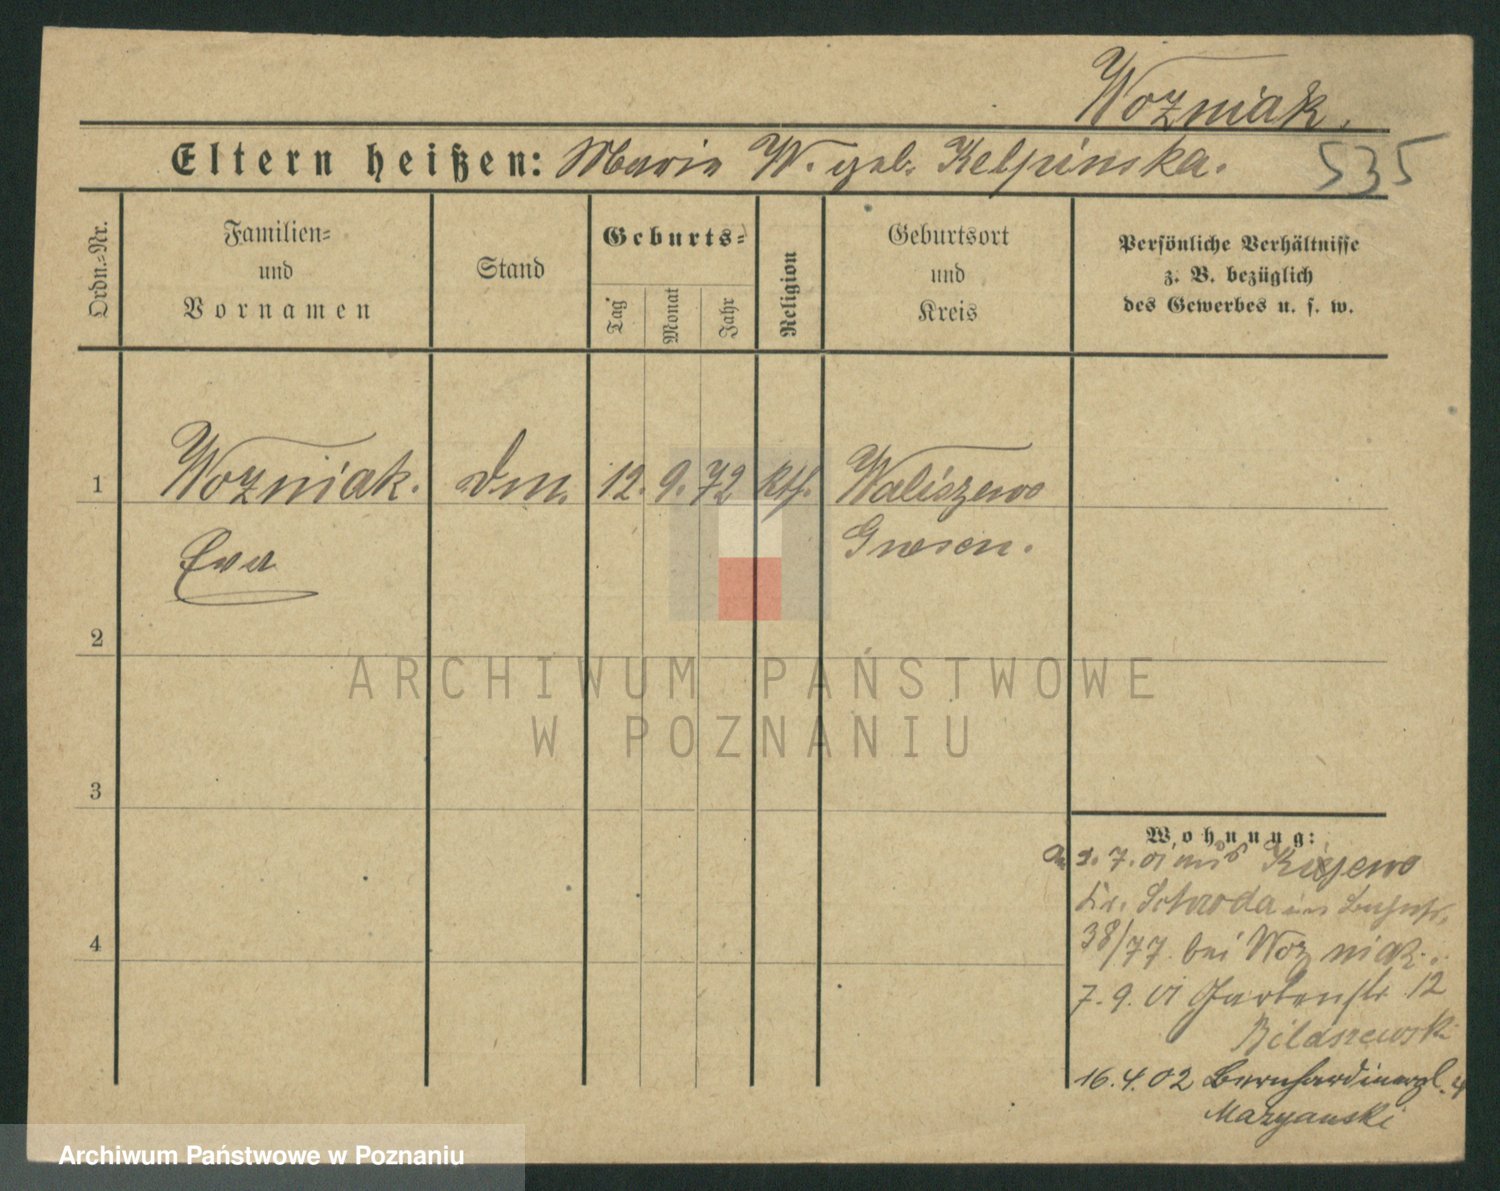 Wozniak.
Eltern heißen: Marie W. geb. Kelpinska.
535
Ordn.=Nr.
Familien=
und
Vornamen
Stand
Geburts=
Tag
Monat
Jahr
Religion
Geburtsort
und
Kreis
Persönliche Verhältnisse
z. B. bezüglich
des Gewerbes u. s. w.
1 Wozniak. 12. 9. 72 Kth. Waliszewo
Eva Gnesen.
2
3
4
Wohnung:
2. 7. 01 aus Kijewo
Kr. Schroda
38/77 bei Wozniak
7. 9. 01 Gartenstr 12
Bilaszewski
16. 4. 02 Bernhardinerpl. 4
Mazyanski
ARCHIWUM PAŃSTWOWE
W POZNANIU
Archiwum Państwowe w Poznaniu